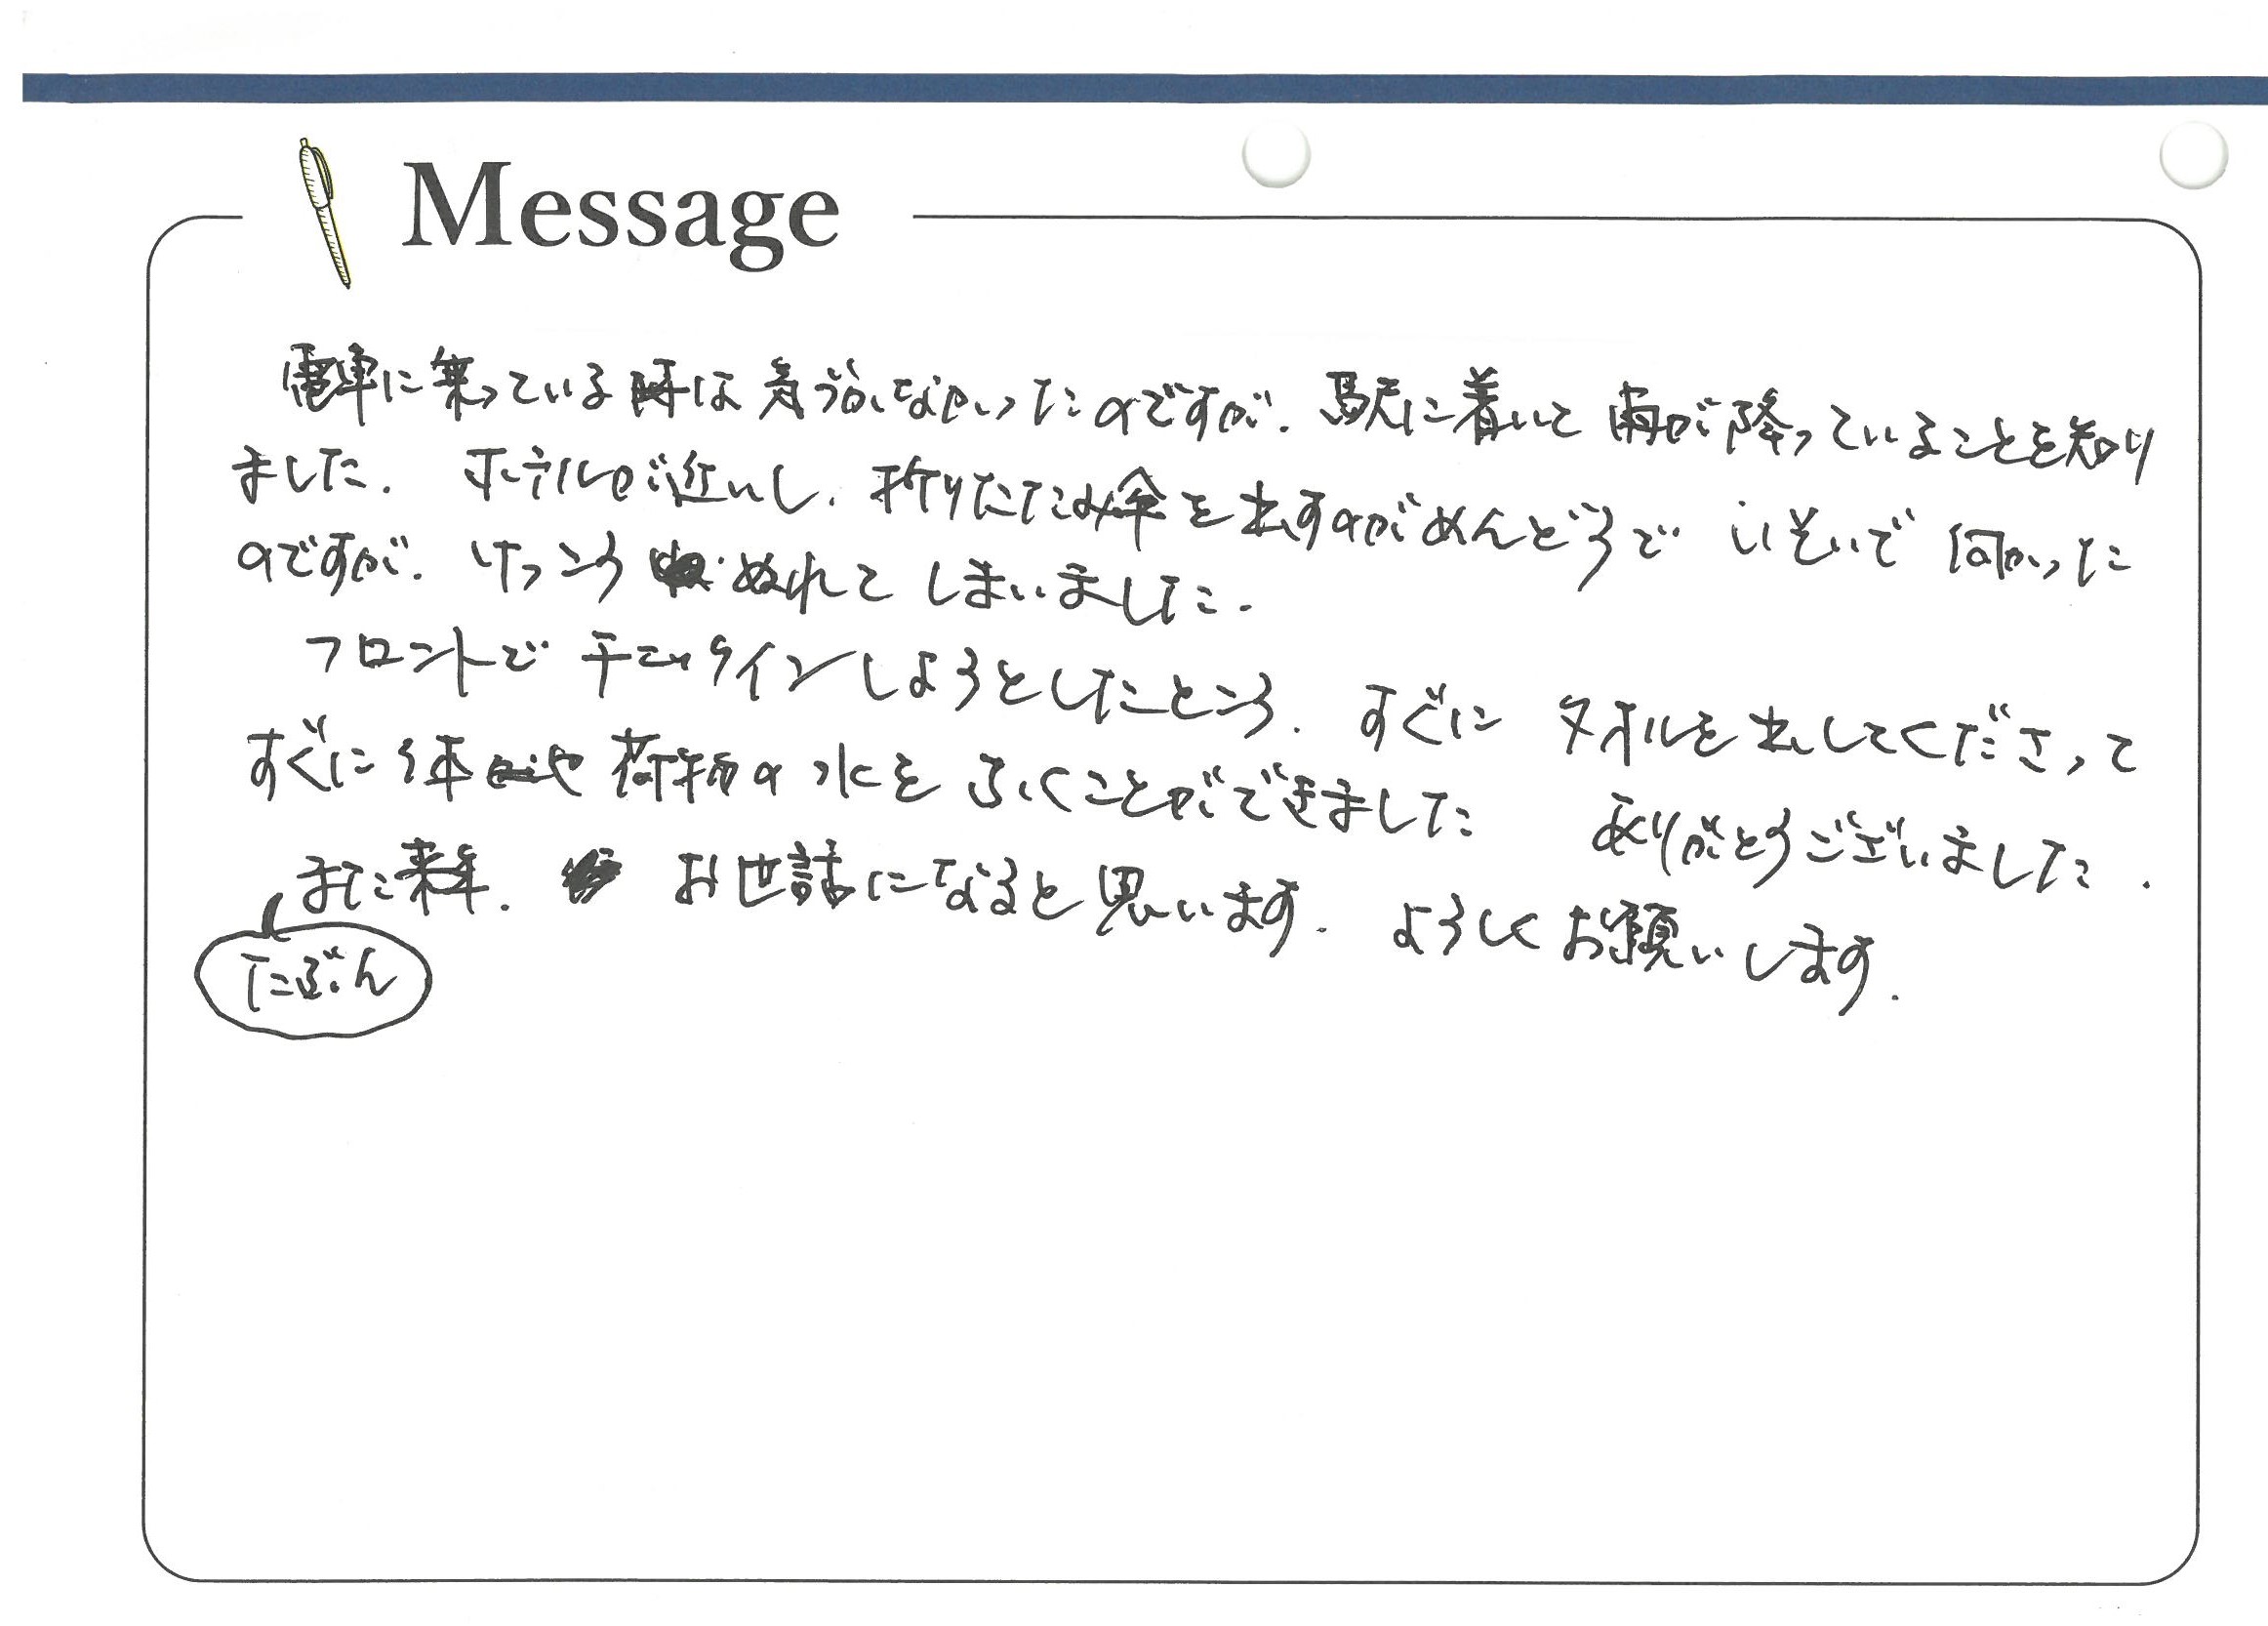 Message
電車に乗っている時は気づかなかったのですが、駅に着いて雨が降っていることを知り
ました。ホテルが近いし、折りたたみ傘を出すのがめんどうで いそいで向かった
のですが、けっこう ぬれてしまいました。
フロントでチェックインしようとしたところ、すぐに タオルを出してくださって
すぐに体や荷物の水をふくことができました ありがとうございました。
また来年、お世話になると思います。よろしくお願いします。
たぶん